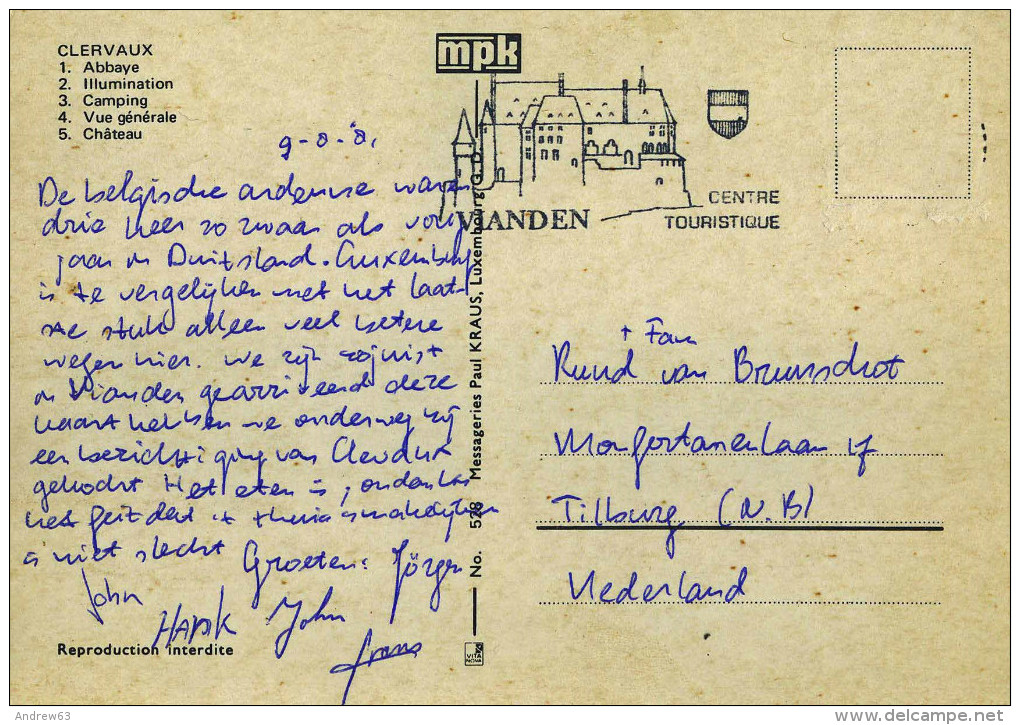 CLERVAUX
1. Abbaye
2. Illumination
3. Camping
4. Vue générale
5. Château
mpk
VIANDEN
CENTRE
TOURISTIQUE
9-8-'81
De belgische ardenne waren
drie keer zo zwaar als vorig
jaar in Duitsland. Luxemburg
is te vergelijken met het laat-
ste stuk alleen veel betere
wegen hier. We zijn zojuist
in Vianden gearriveerd deze
kaart hebben we onderweg bij
een bezichtiging van Clervaux
gekocht Het eten is, ondanks
het feit dat 't thuis smakelijker
is niet slecht
Groeten: Jörgen
John
HANK John
frans
Reproduction interdite
No. 528 Messageries Paul KRAUS, Luxembourg G.D.
VITA
NOVA
+ Fam
Ruud van Brunschot
Monfortanenlaan 17
Tilburg (N.B)
Nederland
Andrew63
delcampe.net